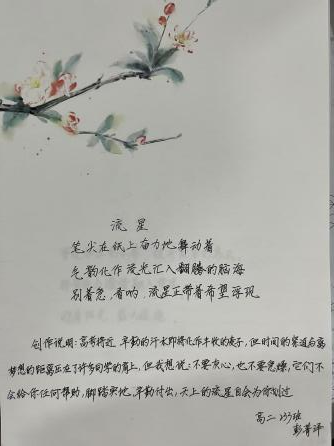 流星
笔尖在纸上奋力地舞动着
气韵化作流光汇入翻腾的脑海
别着急，看呐，流星正带着希望浮现
创作说明：高考将近，辛勤的汗水即将化作丰收的果子，但时间的紧迫与离
梦想的距离压在了许多同学的肩上，但我想说：不要灰心，也不要焦燥，它们不
会给你任何帮助，脚踏实地，辛勤付出，天上的流星自会为你划过
高二 班
彭